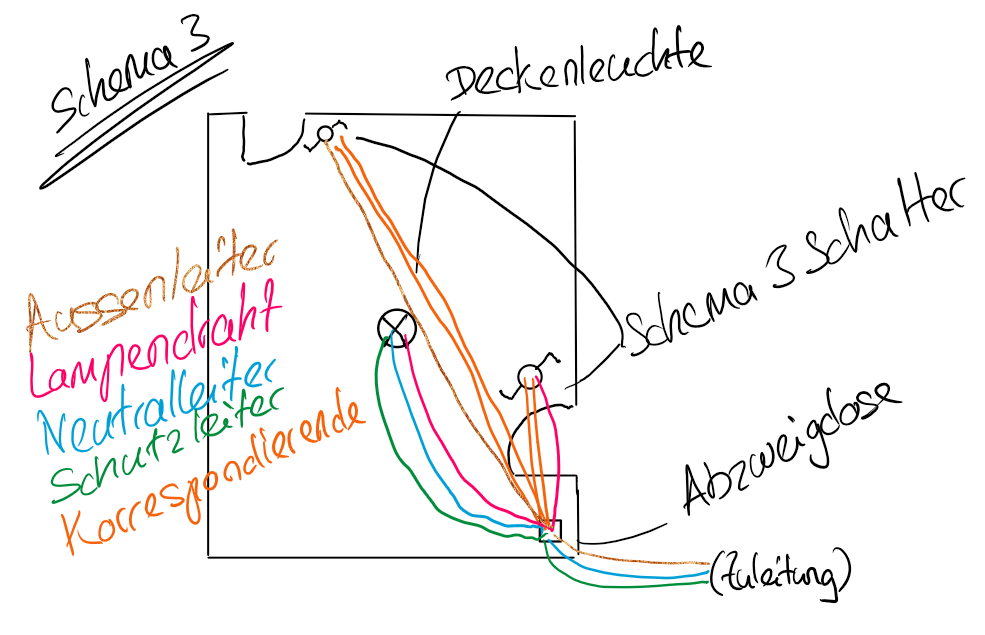 Schema 3
Deckenleuchte
Schema 3 Schalter
Aussenleiter
Lampendraht
Neutralleiter
Schutzleiter
Korrespondierende
Abzweigdose
(Zuleitung)